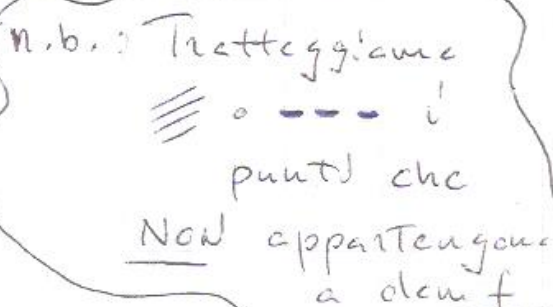 n.b.: Tratteggiamo
o i
punti che
NON appartengono
a dom f